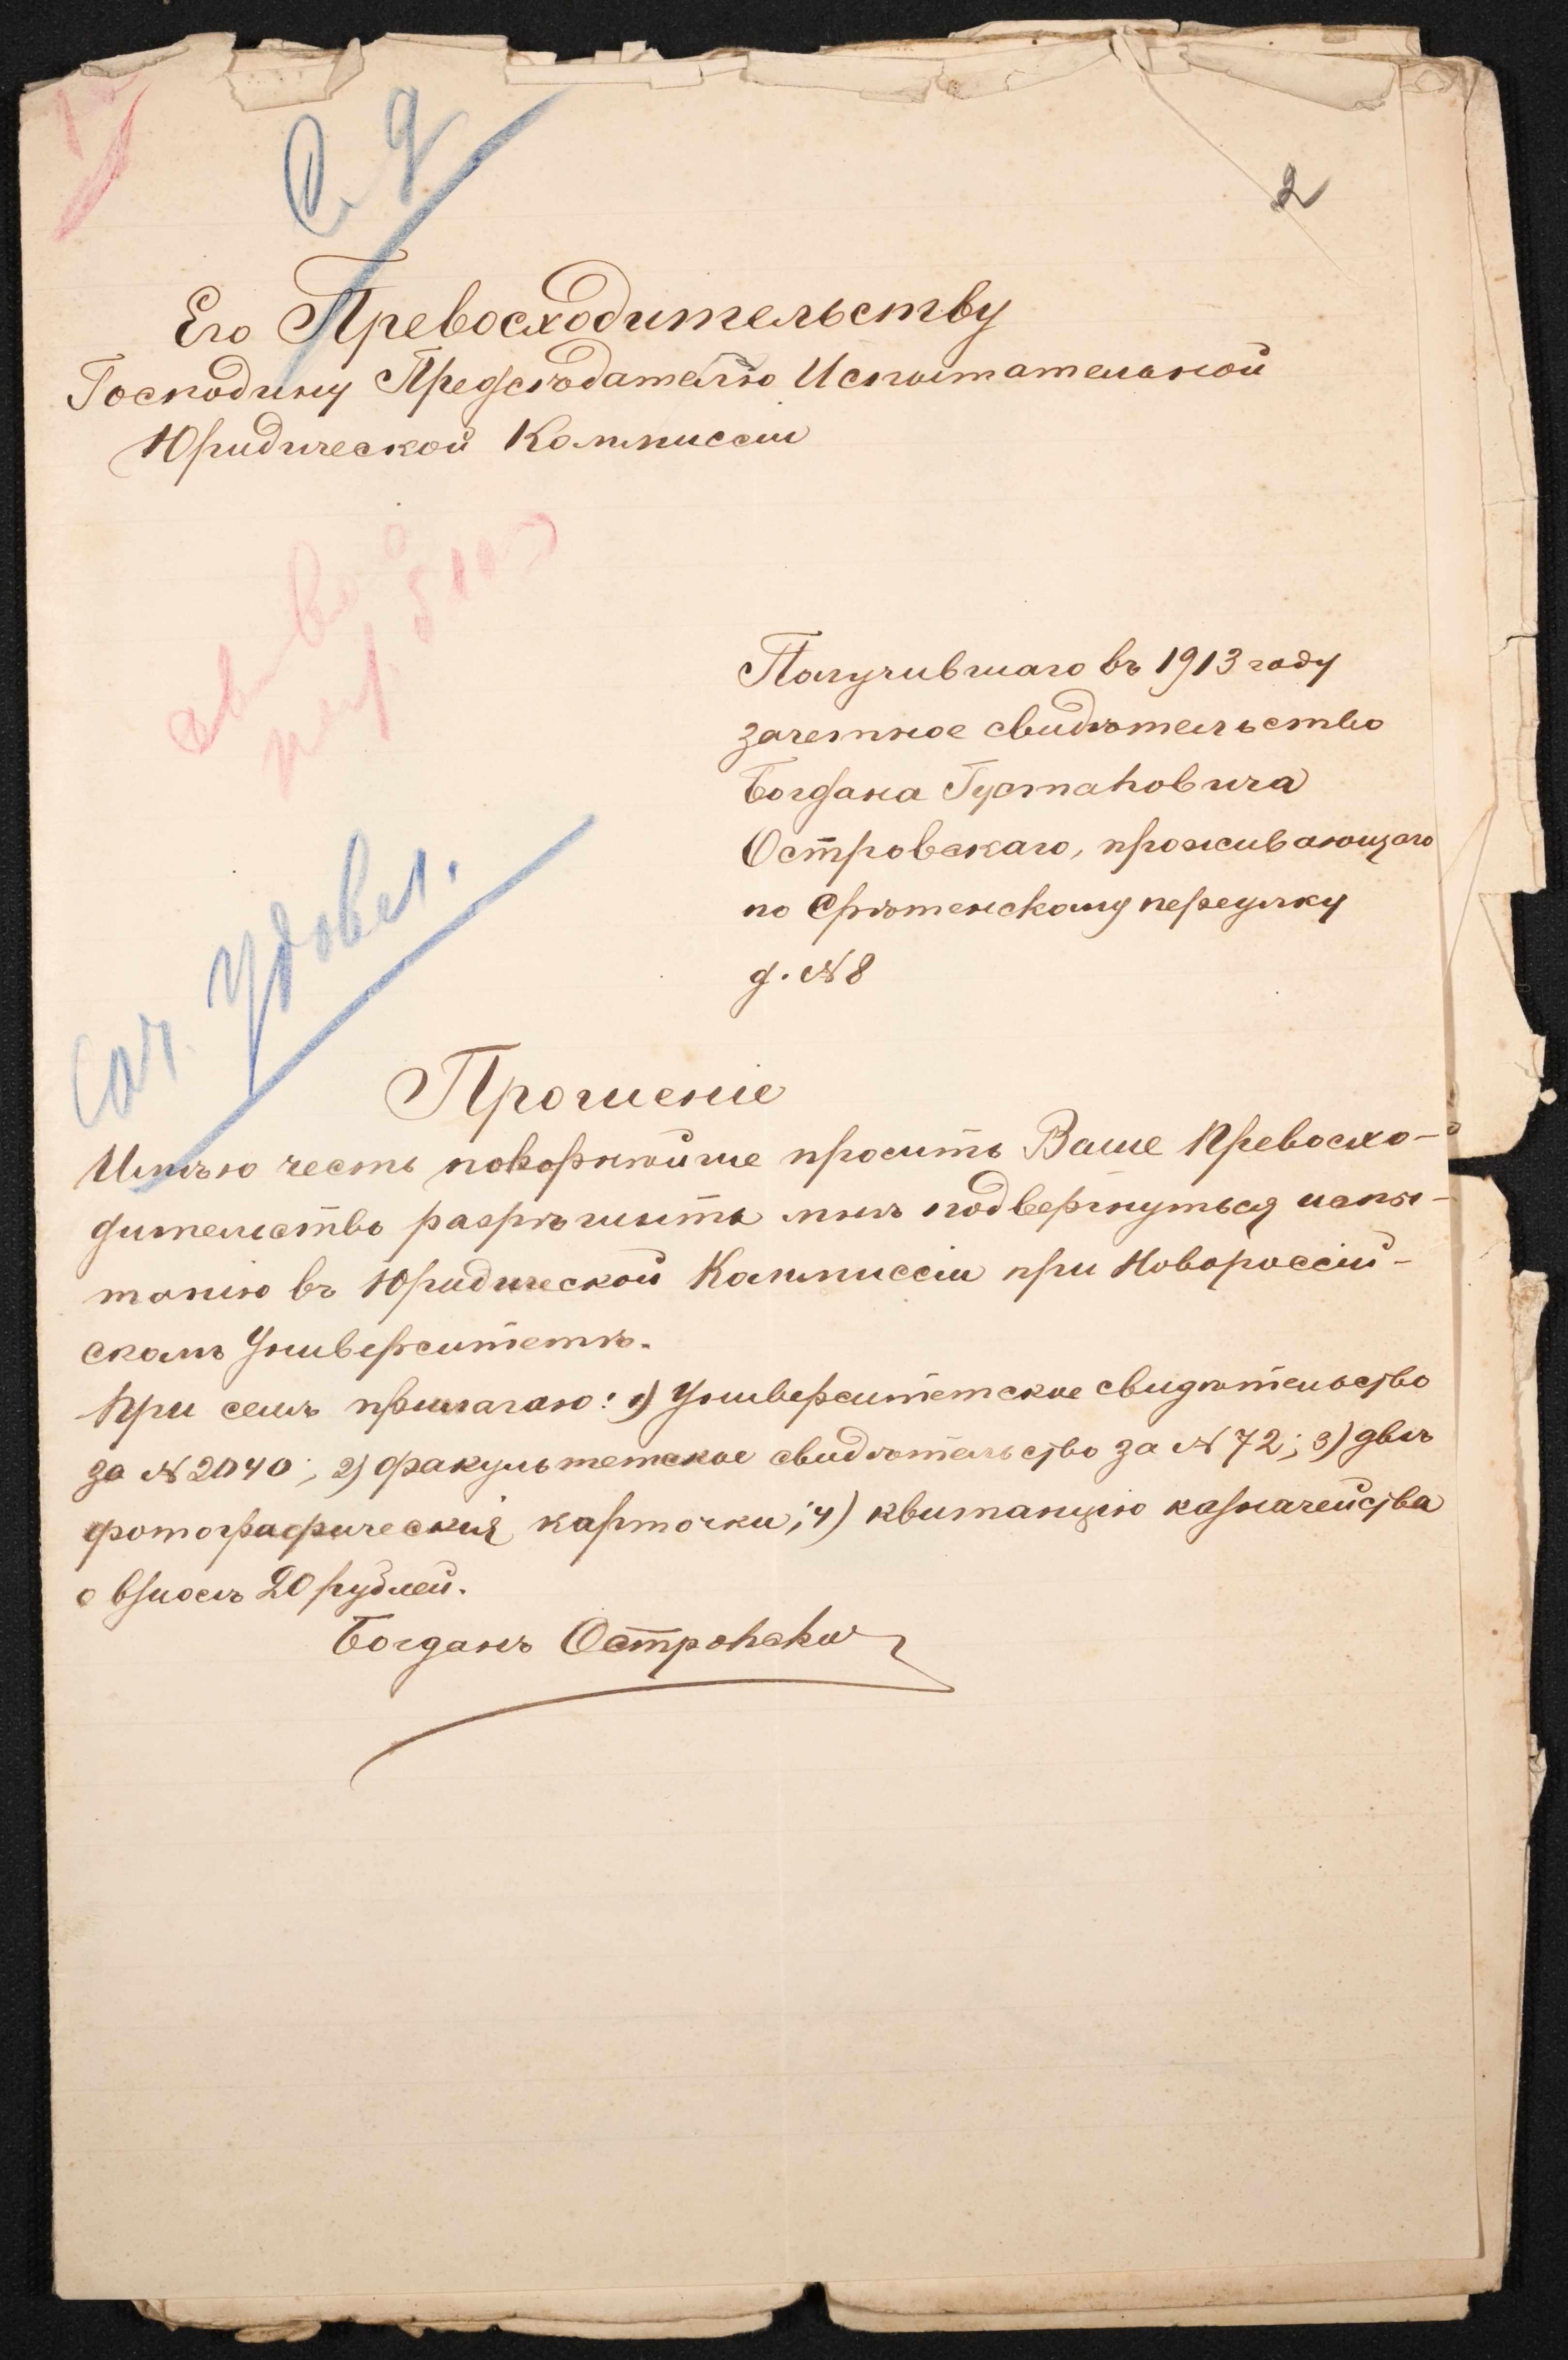 2
Его Превосходительству
Господину Предсѣдателю Испытательной
Юридической Коммиссіи
Получившаго въ 1913 году
зачетное свидѣтельство
Богдана Густавовича
Островскаго, проживающаго
по Срѣтенскому переулку
д. № 8
соч. удовл.
Прошеніе
Имѣю честь покорнѣйше просить Ваше Превосхо-
дительство разрѣшить мнѣ подвергнуться испы-
танію въ Юридической Коммиссіи при Новороссій-
скомъ Университетѣ.
При семъ прилагаю: 1) Университетское свидѣтельство
за № 2040; 2) факультетское свидѣтельство за № 72; 3) двѣ
фотографическія карточки; 4) квитанцію казначейства
о взносѣ 20 рублей.
Богданъ Островскій